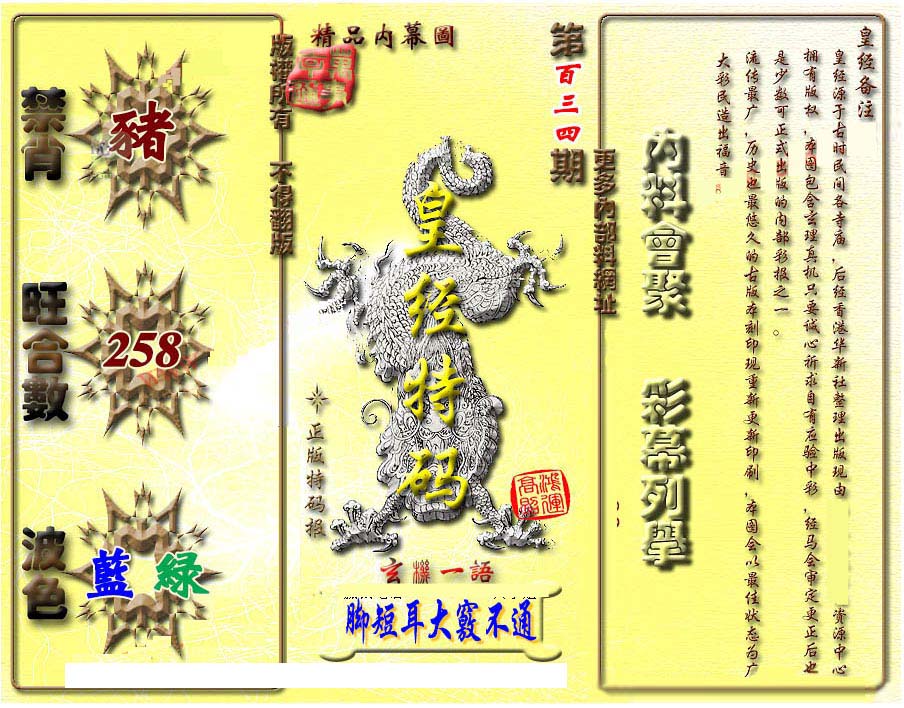 精品内幕圖
第百三四期
版權所有 不得翻版
更多內部料網址
禁肖
豬
旺合數
258
波色
藍 綠
皇经特码
※正版特码报
鴻運高照
玄機一語
脚短耳大竅不通
内料會聚
彩幕列舉
皇经备注
皇经源于古时民间各寺庙,后经香港华新社整理出版现由 资源中心
拥有版权,本图包含玄理真机只要诚心祈求自有应验中彩,经马会审定更正后也
是少数可正式出版的内部彩报之一。
流传最广,历史也最悠久的古版本刻印现重新更新印刷,本图会以最佳状态为广
大彩民造出福音